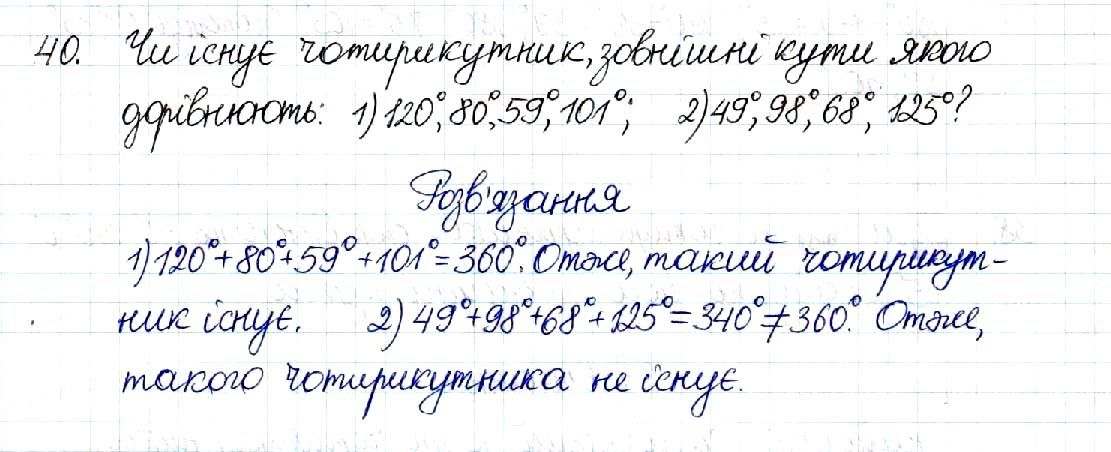 40. Чи існує чотирикутник, зовнішні кути якого
дорівнюють: 1) 120°, 80°, 59°, 101°; 2) 49°, 98°, 68°, 125°?
Розв'язання
1) 120°+80°+59°+101°=360°. Отже, такий чотирикут-
ник існує. 2) 49°+98°+68°+125°=340°≠360°. Отже,
такого чотирикутника не існує.